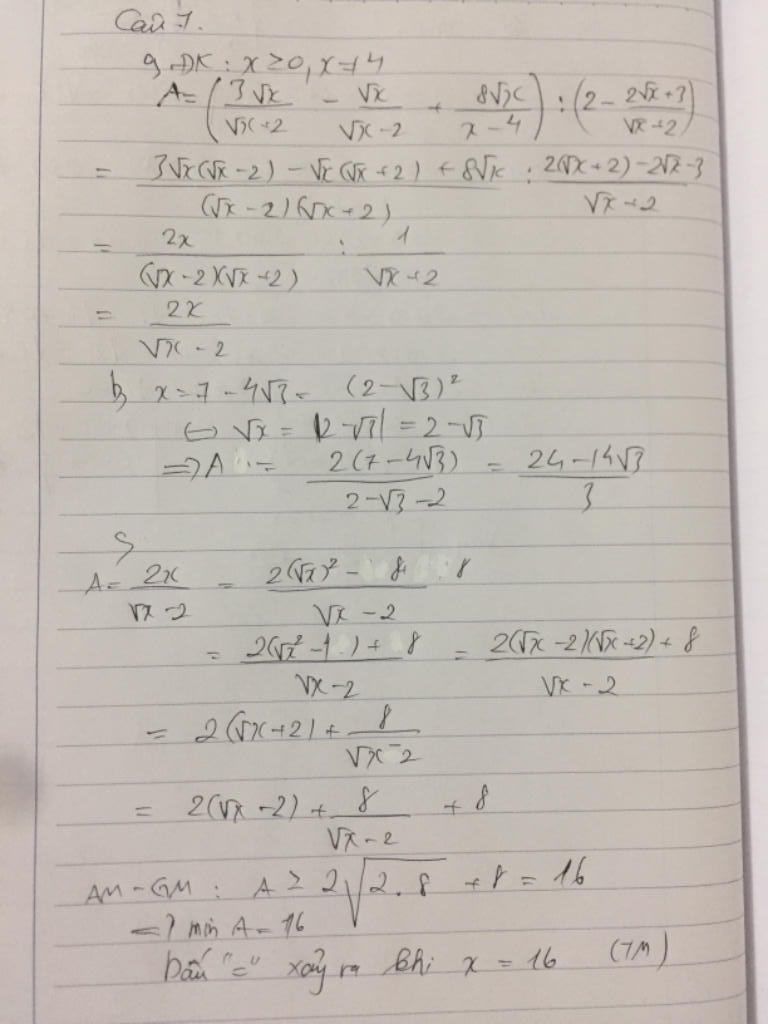 Câu 7.
a, ĐK: x ≥ 0, x ≠ 4
A = (3√x/(√x+2) - √x/(√x-2) + 8√x/(x-4)) : (2 - (2√x+3)/(√x+2))
= (3√x(√x-2) - √x(√x+2) + 8√x)/((√x-2)(√x+2)) : (2(√x+2) - 2√x-3)/(√x+2)
= 2x/((√x-2)(√x+2)) : 1/(√x+2)
= 2x/(√x-2)
b, x = 7 - 4√3 = (2-√3)²
⇔ √x = |2-√3| = 2-√3
⇒ A = 2(7-4√3)/(2-√3-2) = (24-14√3)/3
A = 2x/(√x-2) = (2(√x)² - 8 8)/(√x-2)
= (2(√x² - ) + 8)/(√x-2) = (2(√x-2)(√x+2) + 8)/(√x-2)
= 2(√x+2) + 8/(√x-2)
= 2(√x-2) + 8/(√x-2) + 8
AM-GM: A ≥ 2√(2.8) + 8 = 16
=> min A = 16
Dấu "=" xảy ra khi x = 16 (TM)